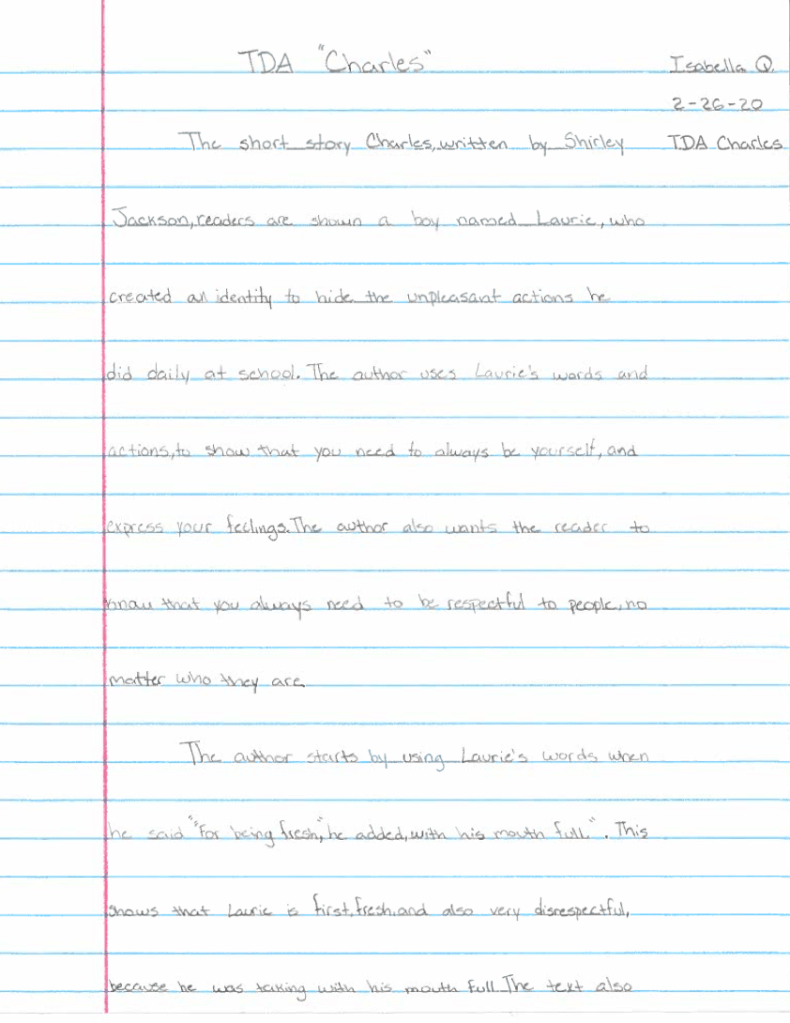 TDA "Charles"
Isabella Q.
2-26-20
TDA Charles
The short story Charles, written by Shirley
Jackson, readers are shown a boy named Laurie, who
created an identity to hide the unpleasant actions he
did daily at school. The author uses Laurie's words and
actions, to show that you need to always be yourself, and
express your feelings. The author also wants the reader to
know that you always need to be respectful to people, no
matter who they are.
The author starts by using Laurie's words when
he said "“For being fresh,” he added, with his mouth full." . This
shows that Laurie is first, fresh, and also very disrespectful,
because he was talking with his mouth full. The text also